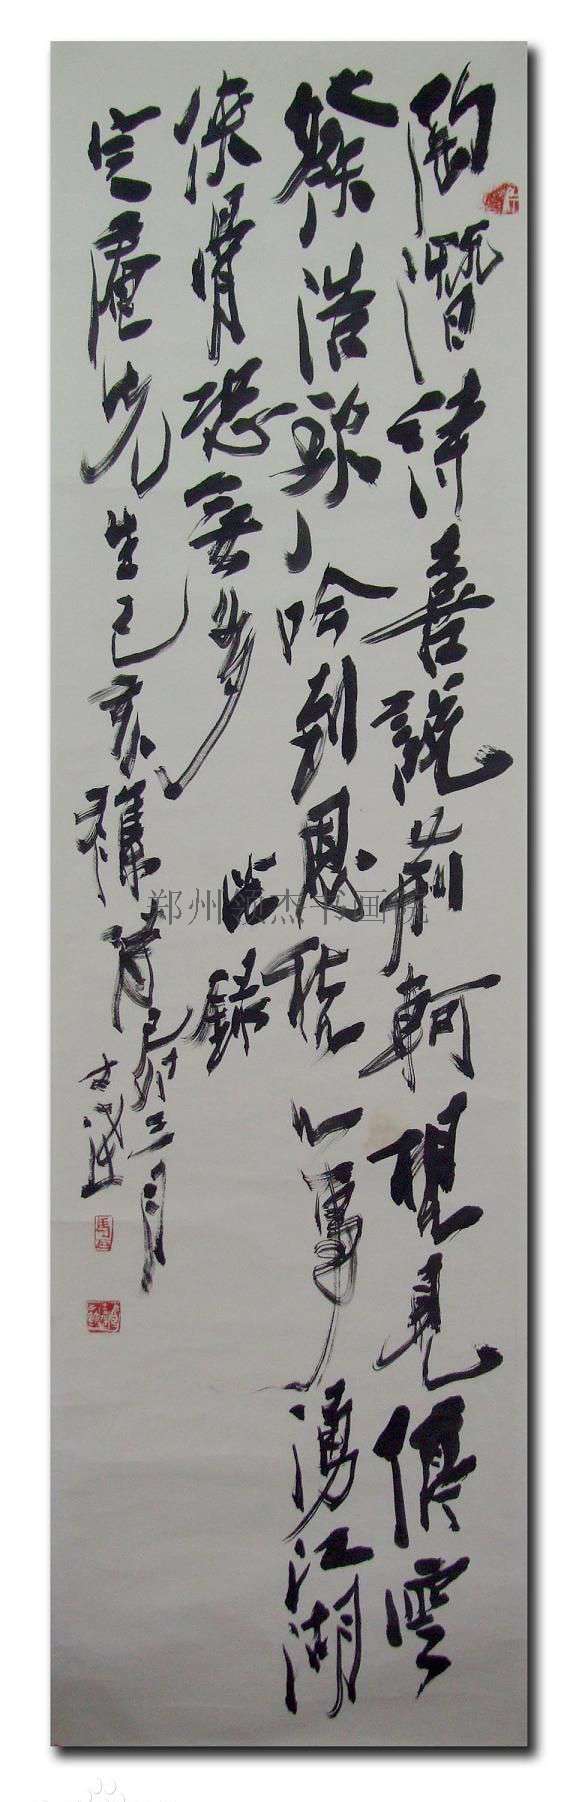 陶潛詩喜說荊軻想見停雲
發浩歌吟到恩仇心事湧江湖
俠骨恐無多 錄
定庵先生己亥雜詩 己卯三月
郑州杰书画院